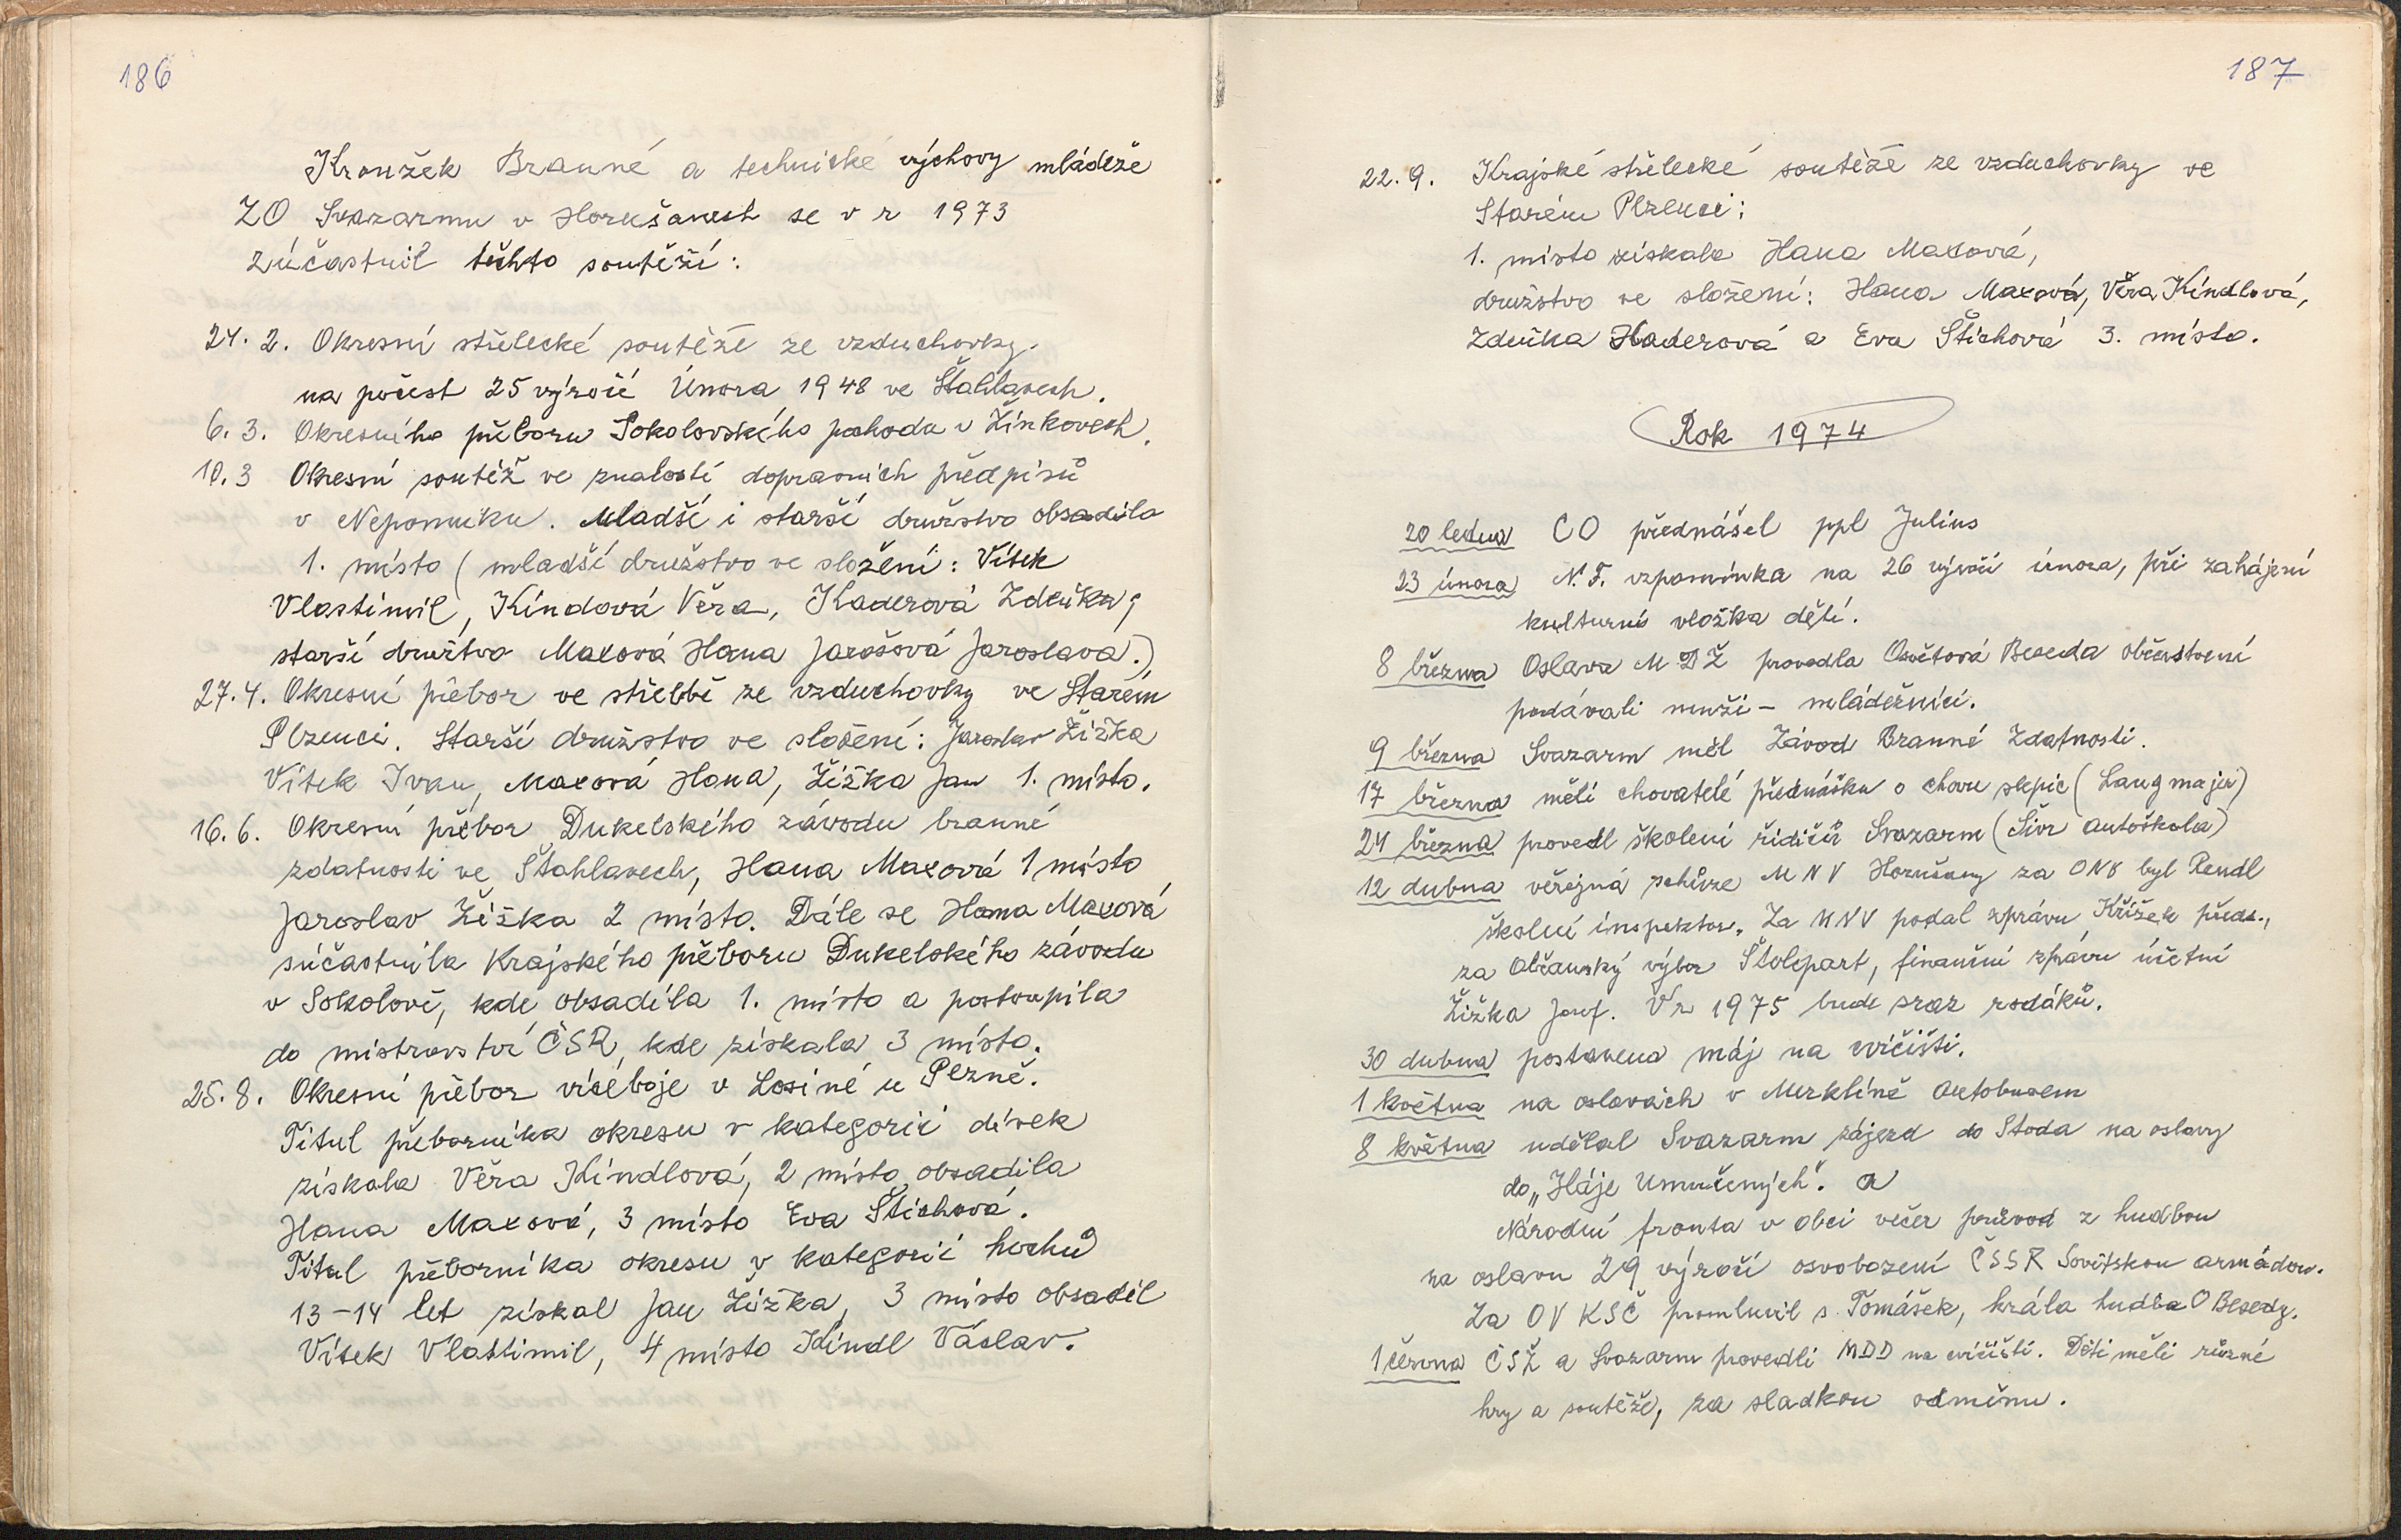 186
Kroužek Branné a technické výchovy mládeže
ZO Svazarmu v Horušanech se v r 1973
zúčastnil těchto soutěží:
24. 2. Okresní střelecké soutěže ze vzduchovky.
na počest 25 výročí Února 1948 ve Šťahlavech.
6. 3. Okresního přeboru Sokolovského pohodu v Žinkovech.
10. 3 Okresní soutěž ve znalosti dopravních předpisů
v Nepomuku. Mladší i starší družstvo obsadilo
1. místo (mladší družstvo ve složení: Vítek
Vlastimil, Kindová Věra, Haderová Zdeňka;
starší družtvo Maxová Hana Jarošová Jaroslava.)
27. 4. Okresní přebor ve střelbě ze vzduchovky ve Starém
Plzenci. Starší družstvo ve složení: Jaroslav Žižka
Vítek Ivan, Maxová Hana, Žižka Jan 1. místo.
16. 6. Okresní přebor Dukelského závodu branné
zdatnosti ve Šťahlavech, Hana Maxová 1 místo
Jaroslav Žižka 2 místo. Dále se Hana Maxová
súčastnila Krajského přeboru Dukelského závodu
v Sokolově, kde obsadila 1. místo a postoupila
do mistrovství ČSR, kde získala 3 místo.
25. 8. Okresní přebor víceboje v Losiné u Plzně.
Titul přeborníka okresu v kategorii dívek
získala Věra Kindlová, 2 místo obsadila
Hana Maxová, 3 místo Eva Štichová.
Titul přeborníka okresu v kategorii hochů
13-14 let získal Jan Žižka, 3 místo obsadil
Vítek Vlastimil, 4 místo Kindl Václav.
187
22. 9. Krajské střelecké soutěže ze vzduchovky ve
Starém Plzenci:
1. místo získala Hana Maxová,
družstvo ve složení: Hana Maxová, Věra Kindlová,
Zdeňka Haderová a Eva Štichová 3. místo.
Rok 1974
20 ledna CO přednášel ppl Julius
23 února N. F. vzpomínka na 26 výročí února, při zahájení
kulturní vložka dětí.
8 března Oslava MDŽ provedla Osvětová Beseda občerstvení
podávali muži - mládežníci.
9 března Svazarm měl Závod Branné Zdatnosti.
17 března měli chovatelé přednášku o chovu slepic (Langmajer)
24 března provedl školení řidičů Svazarm (Šivr autoškola)
12 dubna veřejná schůze MNV Horušany za ONV byl Rendl
školní inspektor. Za MNV podal zprávu Křížek předs.,
za Občanský výbor Štolcpart, finanční zprávu účetní
Žižka Josef. V r 1975 bude sraz rodáků.
30 dubna postavena máj na cvičišti.
1 května na oslavách v Merklíně autobusem
8 května udělal Svazarm zájezd do Stoda na oslavy
do „Háje Umučených". a
Národní fronta v obci večer průvod z hudbou
na oslavu 29 výročí osvobození ČSSR Sovětskou armádou.
Za OV KSČ promluvil s. Tomášek, hrála hudba O Besedy.
1 června ČSŽ a Svazarm provedli MDD na cvičišti. Děti měli různé
hry a soutěže, za sladkou odměnu.